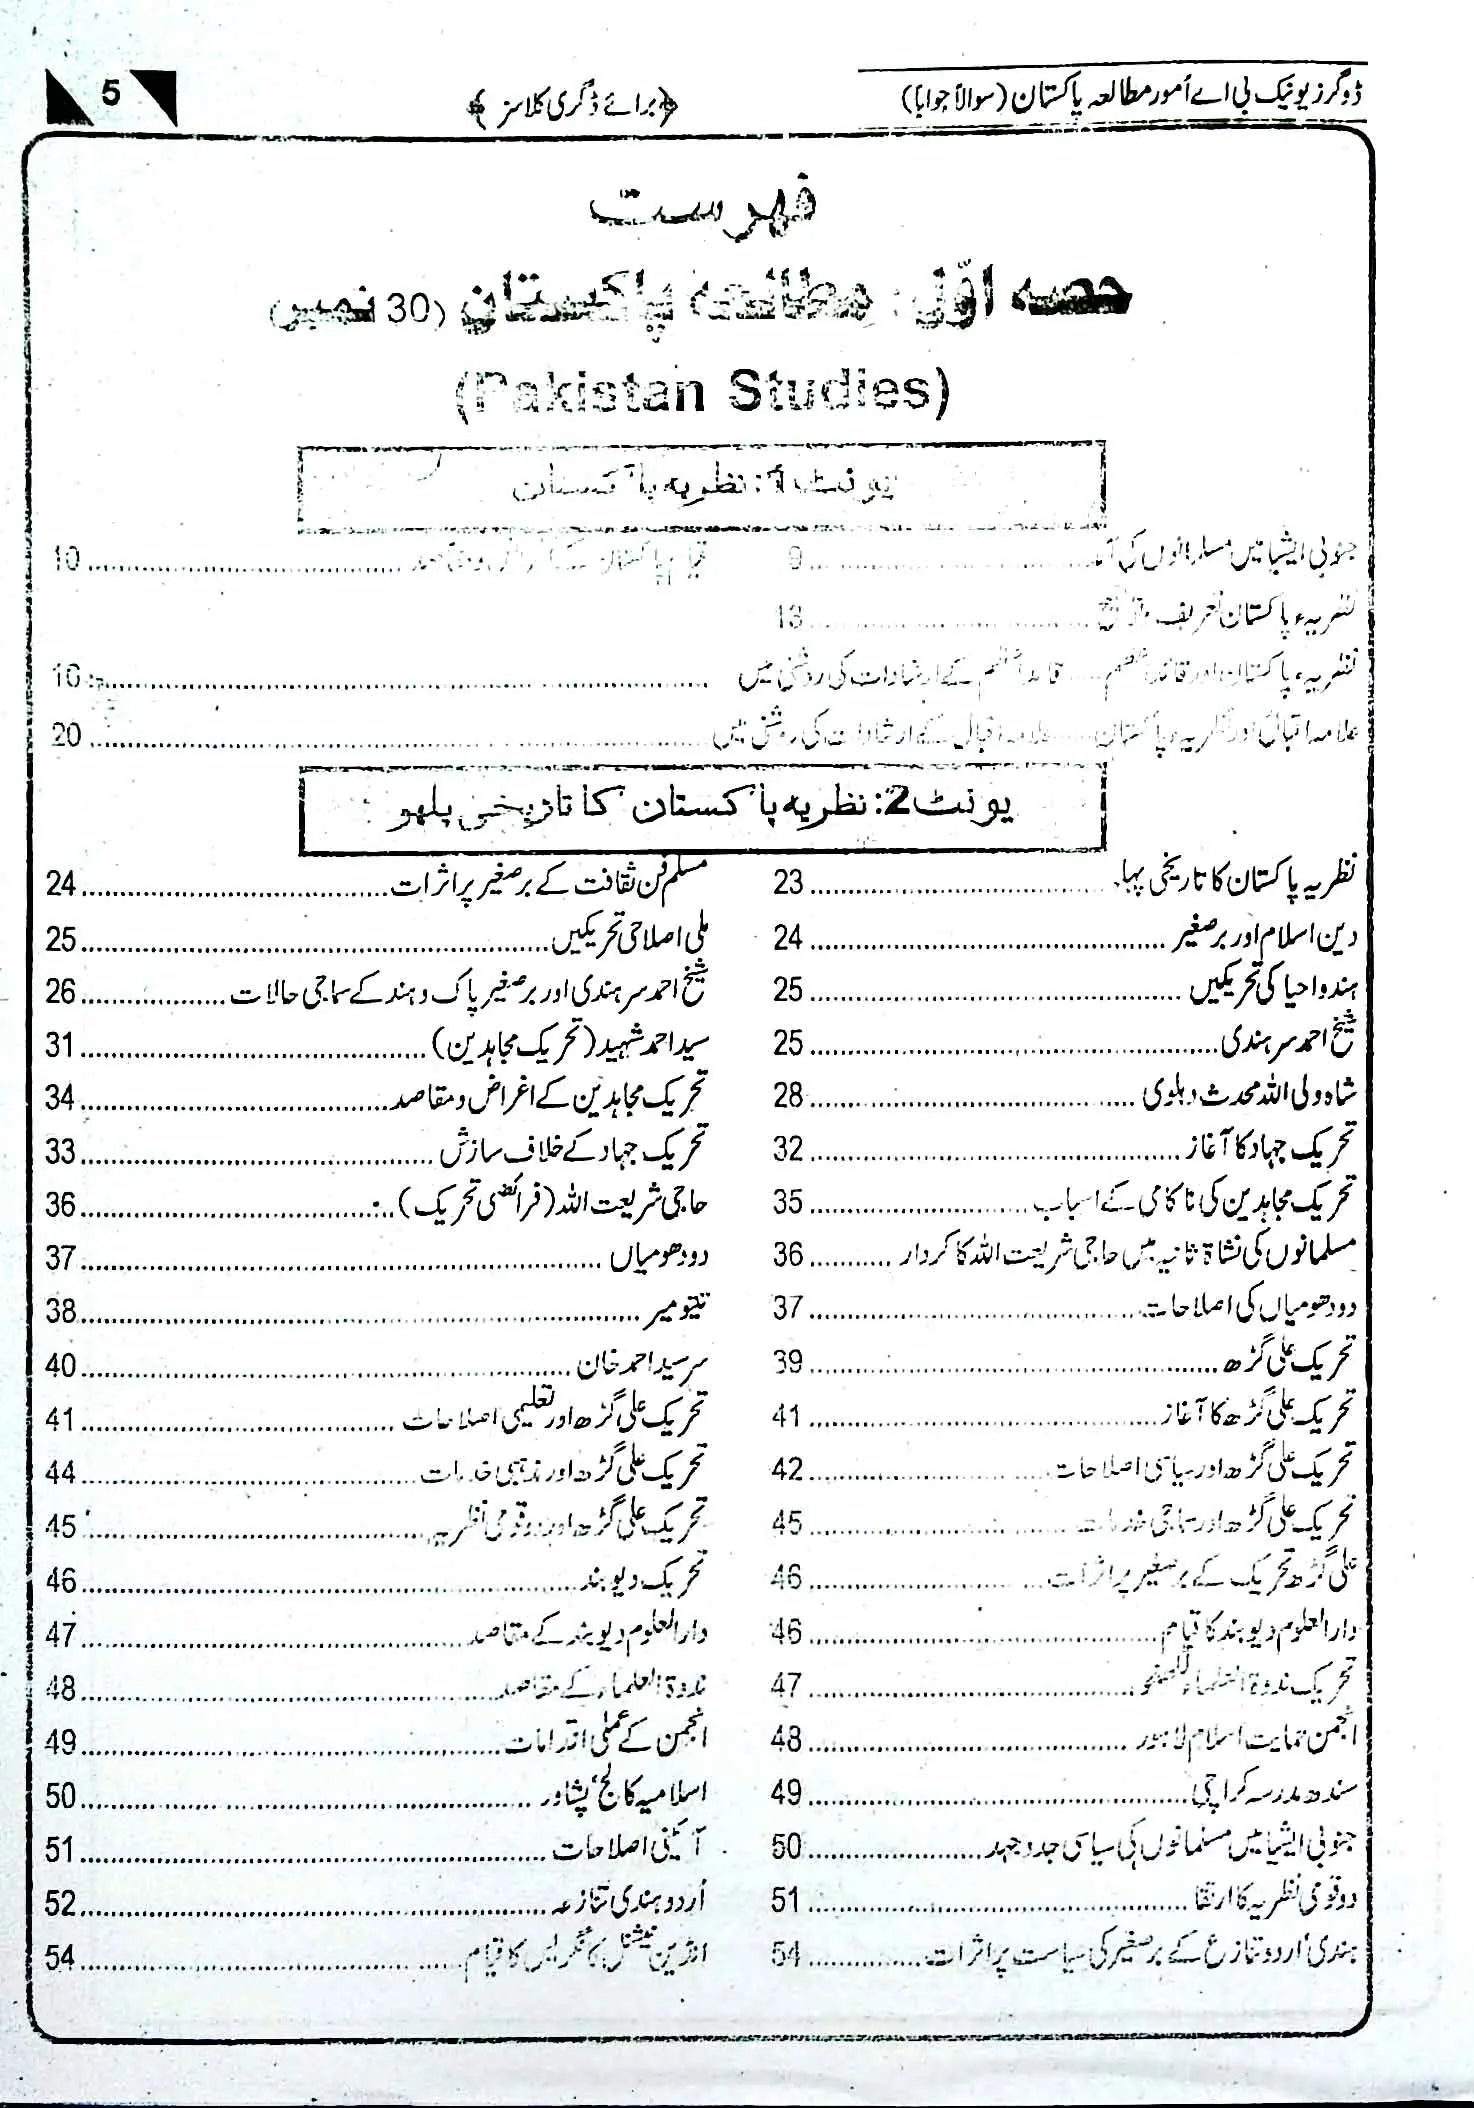 ڈوگرز یونیک بی اے اُمور مطالعہ پاکستان (سوالاً جواباً)
﴿برائے ڈگری کلاسز﴾
5
فہرست
حصہ اوّل: مطالعہ پاکستان (30 نمبر)
(Pakistan Studies)
یونٹ 1: نظریہ پاکستان
جنوبی ایشیا میں مسلمانوں کی آمد ........ 9
قیام پاکستان کے ........ 10
نظریہء پاکستان تعریف ........ 13
نظریہء پاکستان اور قائد اعظم ..... قائد اعظم کے ارشادات کی روشنی میں ........ 16
علامہ اقبال اور نظریہء پاکستان ..... علامہ اقبال کے ارشادات کی روشنی میں ........ 20
یونٹ 2: نظریہ پاکستان کا تاریخی پہلو
نظریہ پاکستان کا تاریخی پہلو ........ 23
مسلم فن ثقافت کے برصغیر پر اثرات ........ 24
دین اسلام اور برصغیر ........ 24
ملی اصلاحی تحریکیں ........ 25
ہندو احیا کی تحریکیں ........ 25
شیخ احمد سرہندی اور برصغیر پاک و ہند کے سماجی حالات ........ 26
شیخ احمد سرہندی ........ 25
سید احمد شہید (تحریک مجاہدین) ........ 31
شاہ ولی اللہ محدث دہلوی ........ 28
تحریک مجاہدین کے اغراض و مقاصد ........ 34
تحریک جہاد کا آغاز ........ 32
تحریک جہاد کے خلاف سازش ........ 33
تحریک مجاہدین کی ناکامی کے اسباب ........ 35
حاجی شریعت اللہ (فرائضی تحریک) ........ 36
مسلمانوں کی نشاۃ ثانیہ میں حاجی شریعت اللہ کا کردار ........ 36
دودھو میاں ........ 37
دودھو میاں کی اصلاحات ........ 37
تیتو میر ........ 38
تحریک علی گڑھ ........ 39
سر سید احمد خان ........ 40
تحریک علی گڑھ کا آغاز ........ 41
تحریک علی گڑھ اور تعلیمی اصلاحات ........ 41
تحریک علی گڑھ اور سیاسی اصلاحات ........ 42
تحریک علی گڑھ اور مذہبی خدمات ........ 44
تحریک علی گڑھ اور سماجی خدمات ........ 45
تحریک علی گڑھ اور دو قومی نظریہ ........ 45
علی گڑھ تحریک کے برصغیر پر اثرات ........ 46
تحریک دیوبند ........ 46
دارالعلوم دیوبند کا قیام ........ 46
دارالعلوم دیوبند کے مقاصد ........ 47
تحریک ندوۃ العلماء لکھنؤ ........ 47
ندوۃ العلماء کے مقاصد ........ 48
انجمن حمایت اسلام لاہور ........ 48
انجمن کے عملی اقدامات ........ 49
سندھ مدرسہ کراچی ........ 49
اسلامیہ کالج، پشاور ........ 50
جنوبی ایشیا میں مسلمانوں کی سیاسی جدوجہد ........ 50
آئینی اصلاحات ........ 51
دو قومی نظریہ کا ارتقا ........ 51
اُردو ہندی تنازعہ ........ 52
ہندی اُردو تنازع کے برصغیر کی سیاست پر اثرات ........ 54
انڈین نیشنل کانگریس کا قیام ........ 54